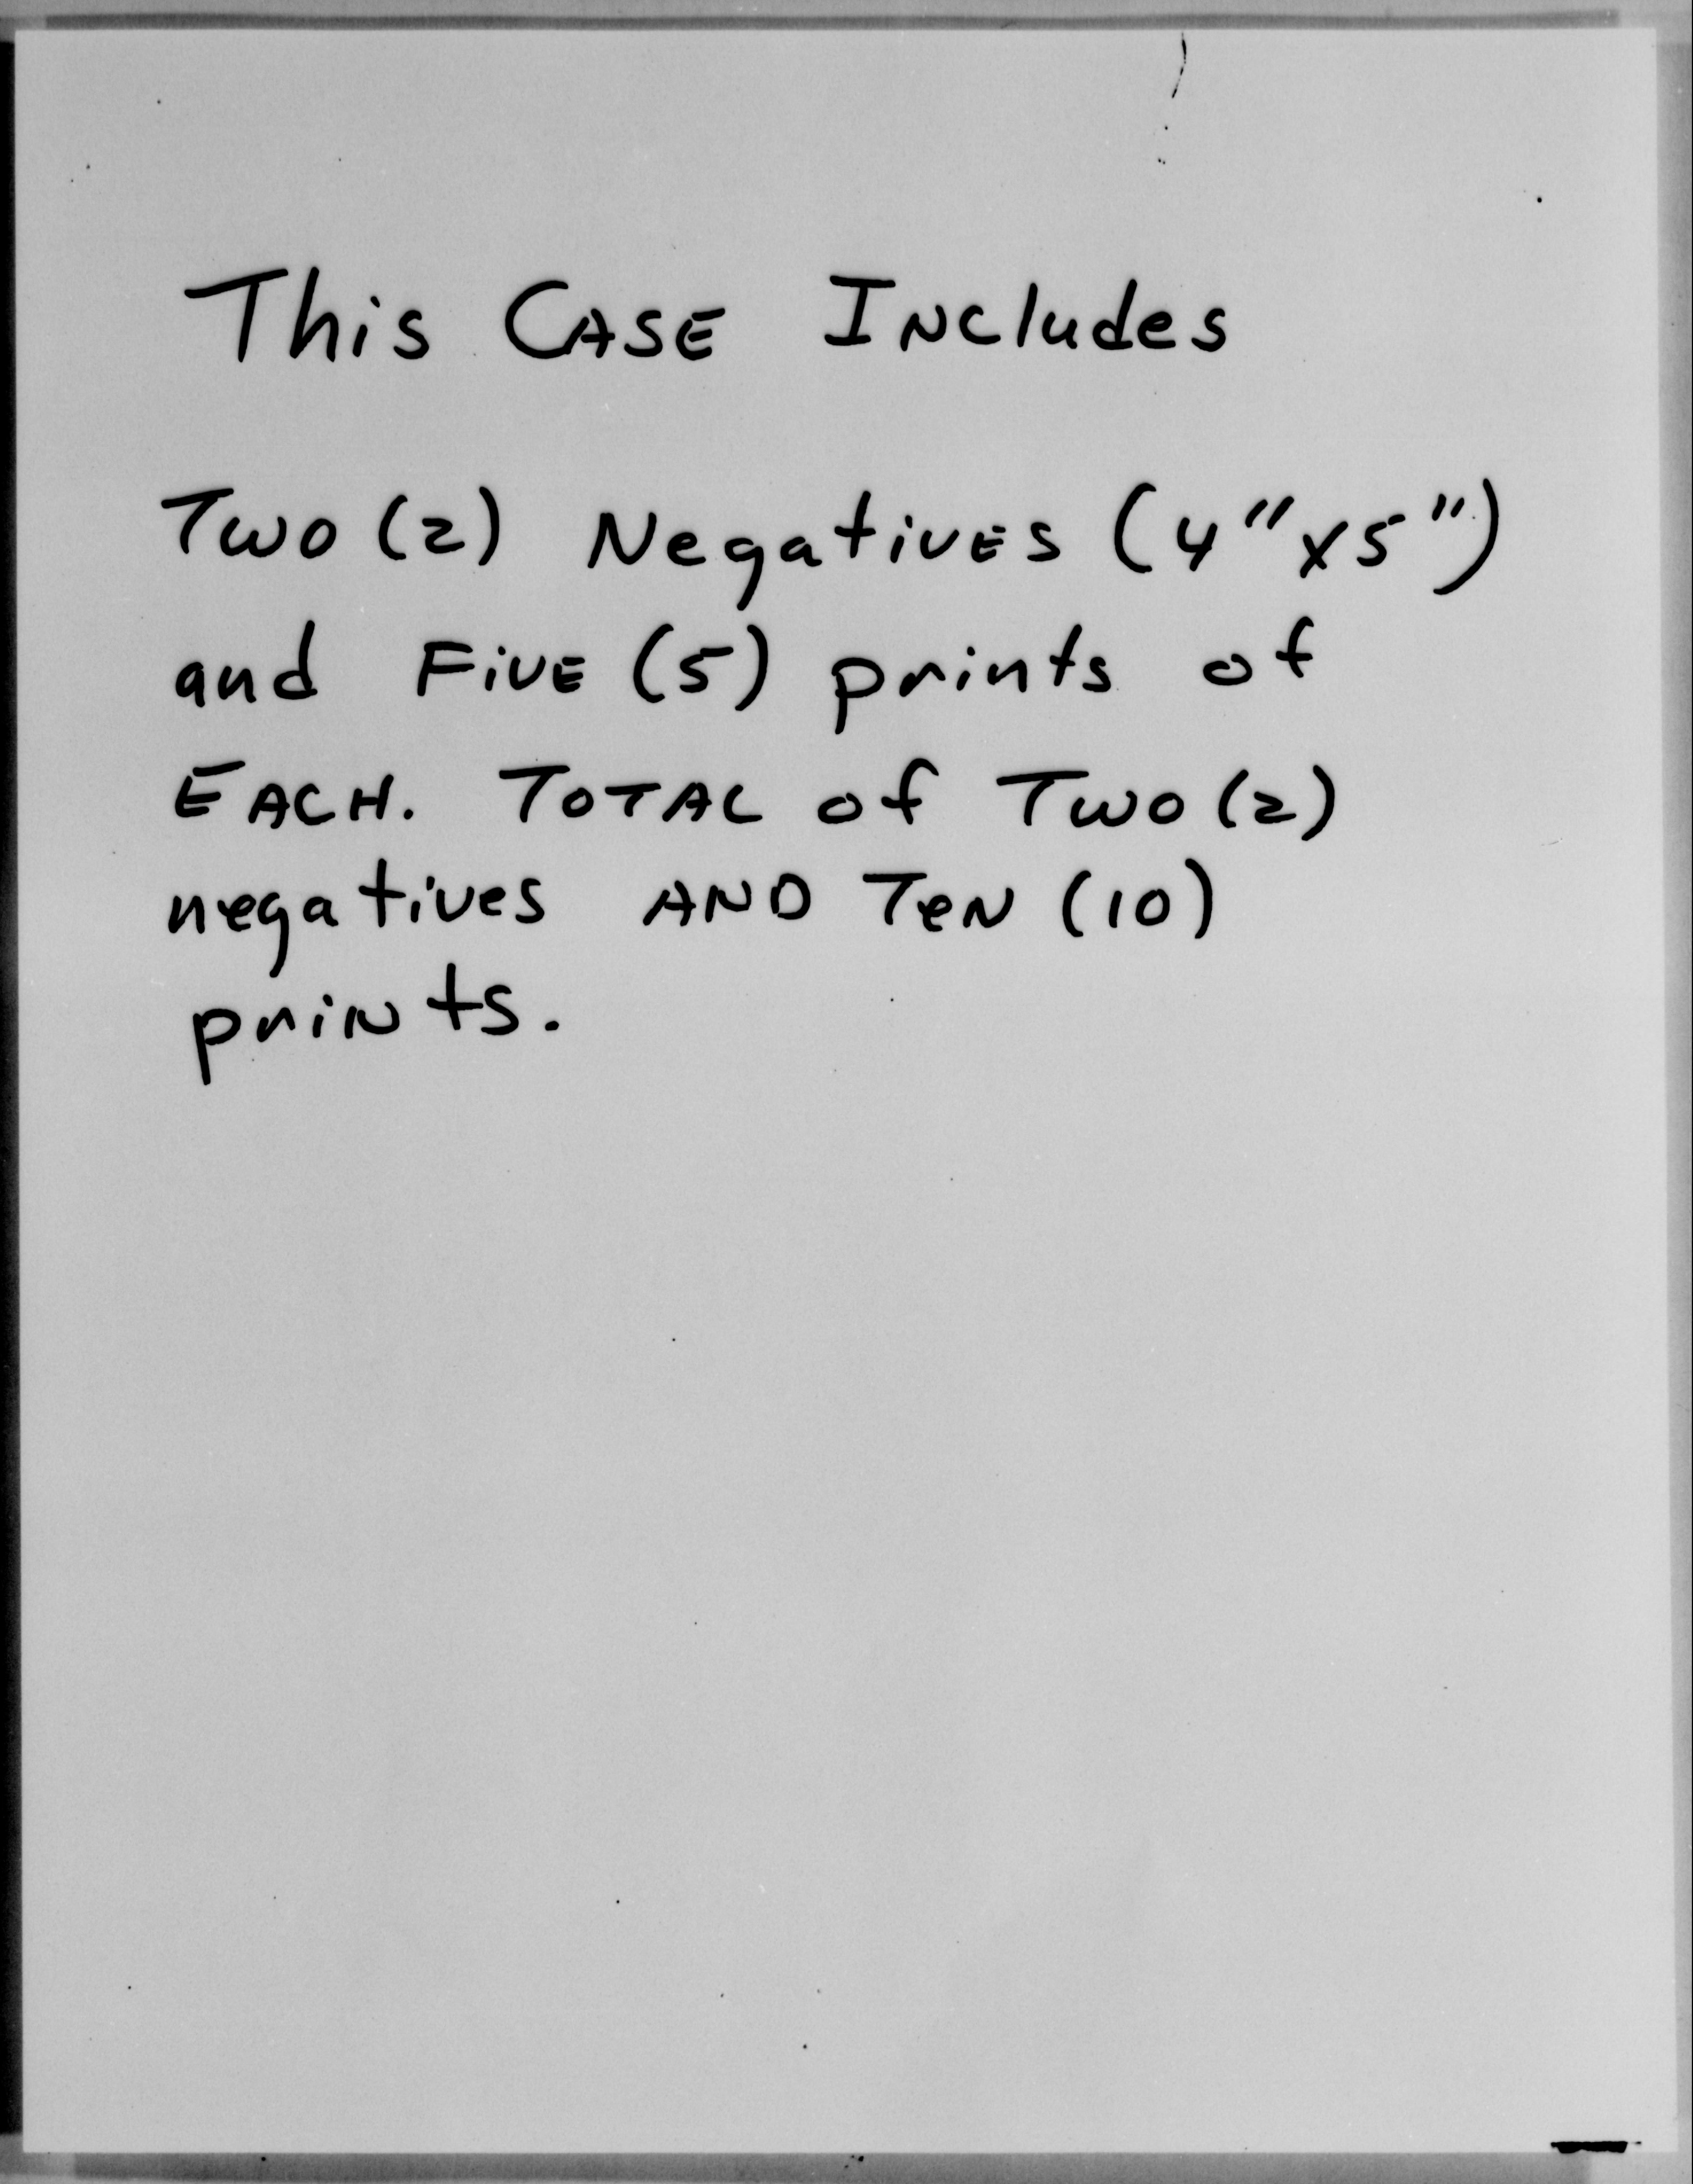 This CASE INCludes
Two (2) NegatiVES (4"x5")
and FiVE (5) prints of
EACH. TOTAL of Two (2)
negatives AND TeN (10)
priNts.